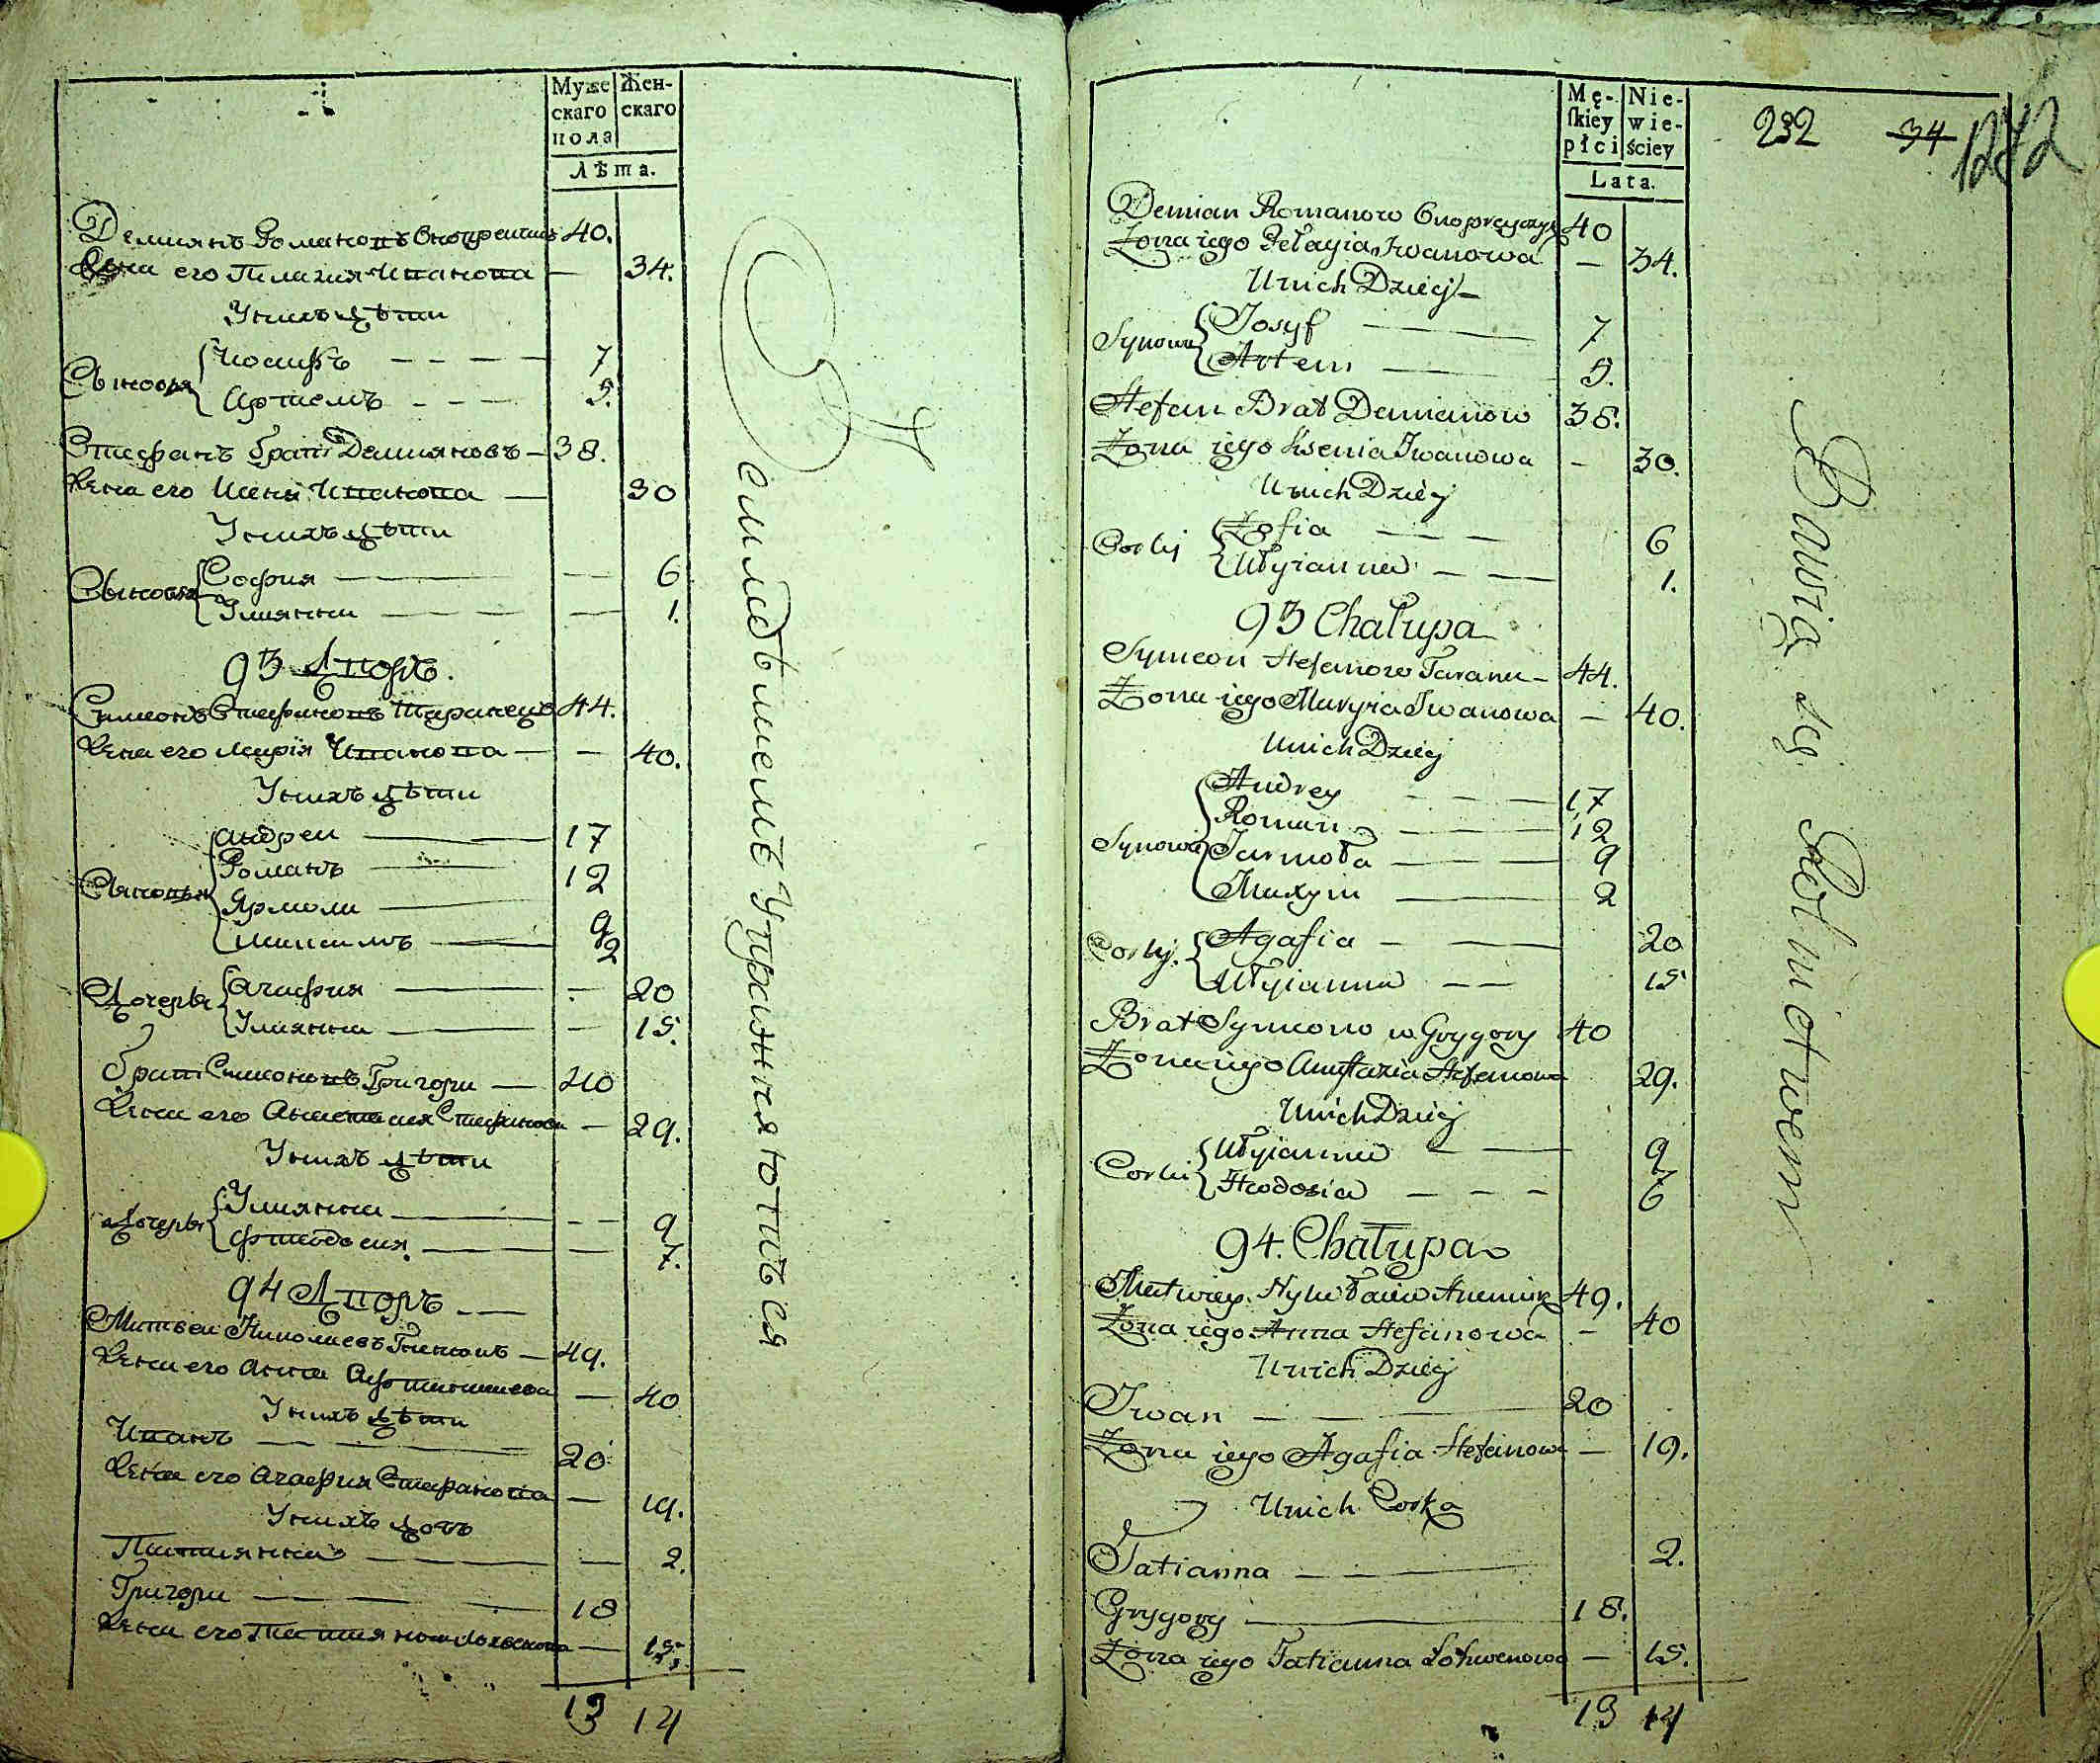 Муже Жен-
скаго скаго
пола
Лѣта.
Демиянъ Романовъ 40.
Жена его Пилагия Иванова — 34.
У нихъ дѣти
Сыновя
Иосифъ — 7
Артемъ — 5.
Стефанъ братъ Демияновъ — 38.
Жена его Иванова — 30
У нихъ дѣти
София — 6
Улиянна — 1.
93 Дворъ.
Симеонъ Стефановъ 44.
Жена его Марія Иванова — 40.
У нихъ дѣти
Андреи — 17
Романъ — 12
Ярмола — 9
Максимъ — 2
Дочеръи
Агафия — 20
Улиянна — 15.
братъ Симоновъ Григори — 40
Жена его Стефанова — 29.
У нихъ дѣти
Дочеръи
Улиянна — 9
Фтеодосия — 7.
94 Дворъ —
Матвеи Николаевъ — 49.
Жена его Анна — 40
У нихъ дѣти
Иванъ — 20
Жена его Агафия Стефанова — 19.
У нихъ дочь
Татиянна — 2.
Григори — 18
Жена его Татиянна — 15.
13 14
Земледѣлиемъ Упражняютъся
Mę- Nie-
ſkiey wie-
płci ściey
Lata.
232 34 1272
Demian Romanow 40
Żona iego Pełagia Iwanowa — 34.
U nich Dzieci —
Synowie
Iosyf — 7
Artem — 5.
Stefan Brat Demianow 38.
Żona iego Ksenia Iwanowa — 30.
U nich Dzieci
Corki
Zofia — 6
Ułyianna — 1.
93 Chałupa
Symeon Stefanow — 44.
Żona iego Maryia Iwanowa — 40.
U nich Dzieci
Synowie
Andrey — 17
Roman — 12
Iarmoła — 9
Maxym — 2
Corki
Agafia — 20
Ułyianna — 15
Brat Symeonow Grygory 40
Żona iego Anastazia Stefanowa 29.
U nich Dzieci
Corki
Ułyianna — 9
Fteodosia — 6
94. Chałupa
Matwiey 49.
Żona iego Anna Stefanowa — 40
U nich Dzieci
Iwan — 20
Żona iego Agafia Stefanowa — 19.
U nich Corka
Tatianna — 2.
Grygory — 18.
Żona iego Tatianna — 15.
13 14
Bawią się Rolnictwem